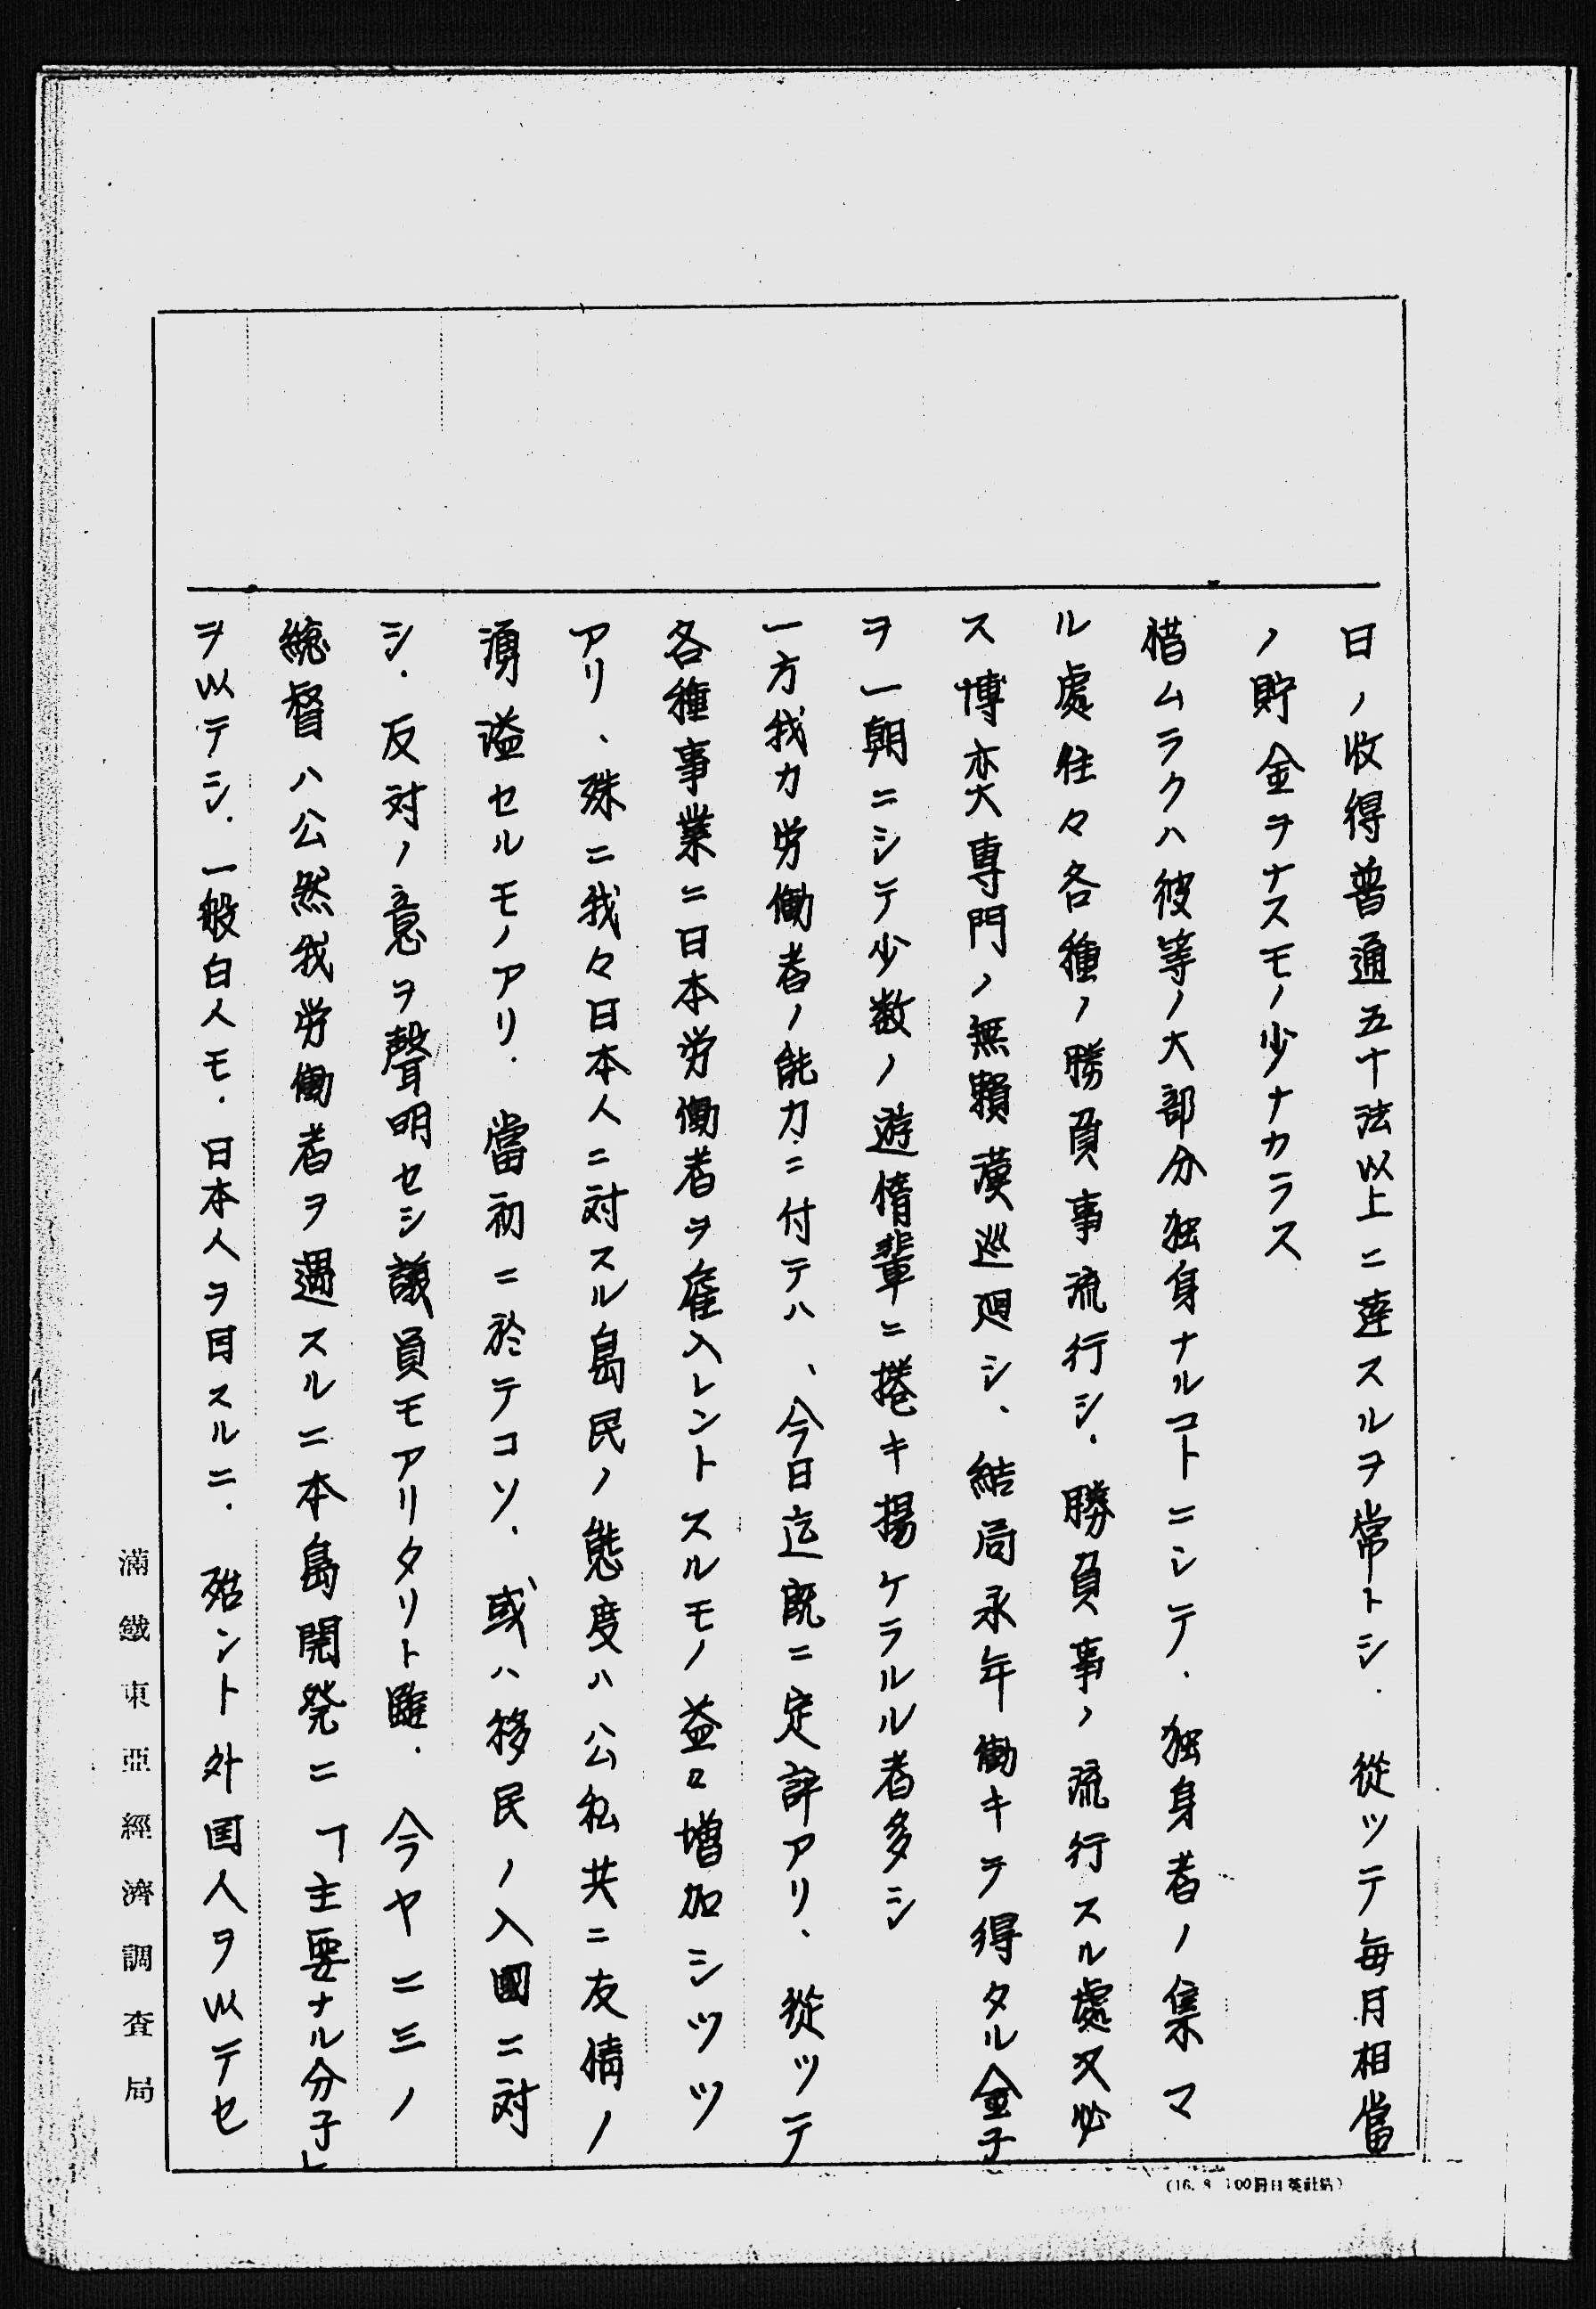 日ノ收得普通五十法以上ニ達スルヲ常トシ．從ツテ毎月相當
ノ貯金ヲナスモノ少ナカラス
惜ムラクハ彼等ノ大部分独身ナルコトニシテ．独身者ノ集マ
ル處往々各種ノ勝負事流行シ．勝負事ノ流行スル處又必
ス博奕専門ノ無賴漢巡廻シ、結局永年働キテ得タル金子
ヲ一朝ニシテ少数ノ遊惰輩ニ捲キ揚ケラルル者多シ
一方我カ労働者ノ能力ニ付テハ、今日迄既ニ定評アリ、從ツテ
各種事業ニ日本労働者ヲ雇入レントスルモノ益々増加シツツ
アリ、殊ニ我々日本人ニ対スル島民ノ態度ハ公私共ニ友情ノ
湧溢セルモノアリ．當初ニ於テコソ．或ハ移民ノ入國ニ対
シ．反対ノ意ヲ聲明セシ議員モアリタリト雖．今ヤ二三ノ
総督ハ公然我労働者ヲ遇スルニ本島開発ニ「主要ナル分子」
ヲ以テシ．一般白人モ．日本人ヲ目スルニ．殆ント外国人ヲ以テセ
滿鐵東亞經濟調査局